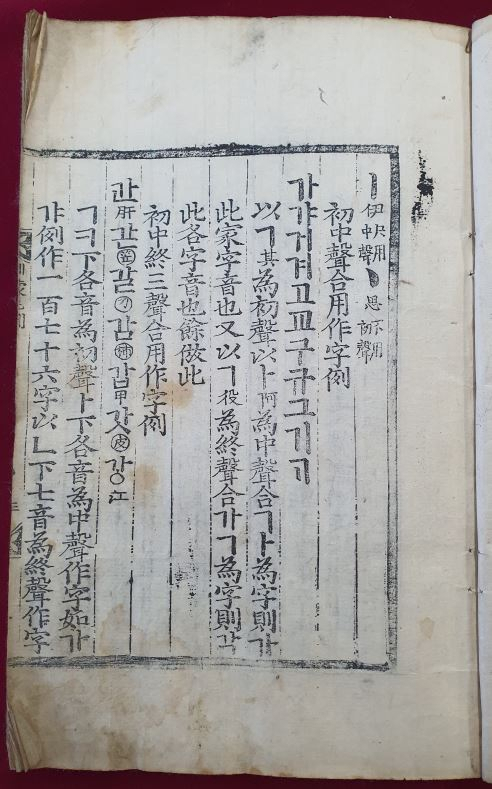 ㅣ伊只用中聲 ㆍ思不用初聲
初中聲合用作字例
가갸거겨고교구규그기ᄀᆞ
以ㄱ其為初聲以ㅏ阿為中聲合ㄱㅏ為字則가
此家字音也又以ㄱ役為終聲合가ㄱ為字則각
此各字音也餘倣此
初中終三聲合用作字例
간肝갇笠갈刀감枾갑甲갓皮강江
ㄱㅋ下各音為初聲ㅏ下各音為中聲作字如가
갸例作一百七十六字以ㄴ下七音為終聲作字